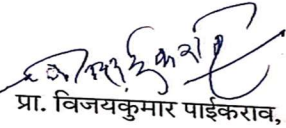 प्रा. विजयकुमार पाईकराव,